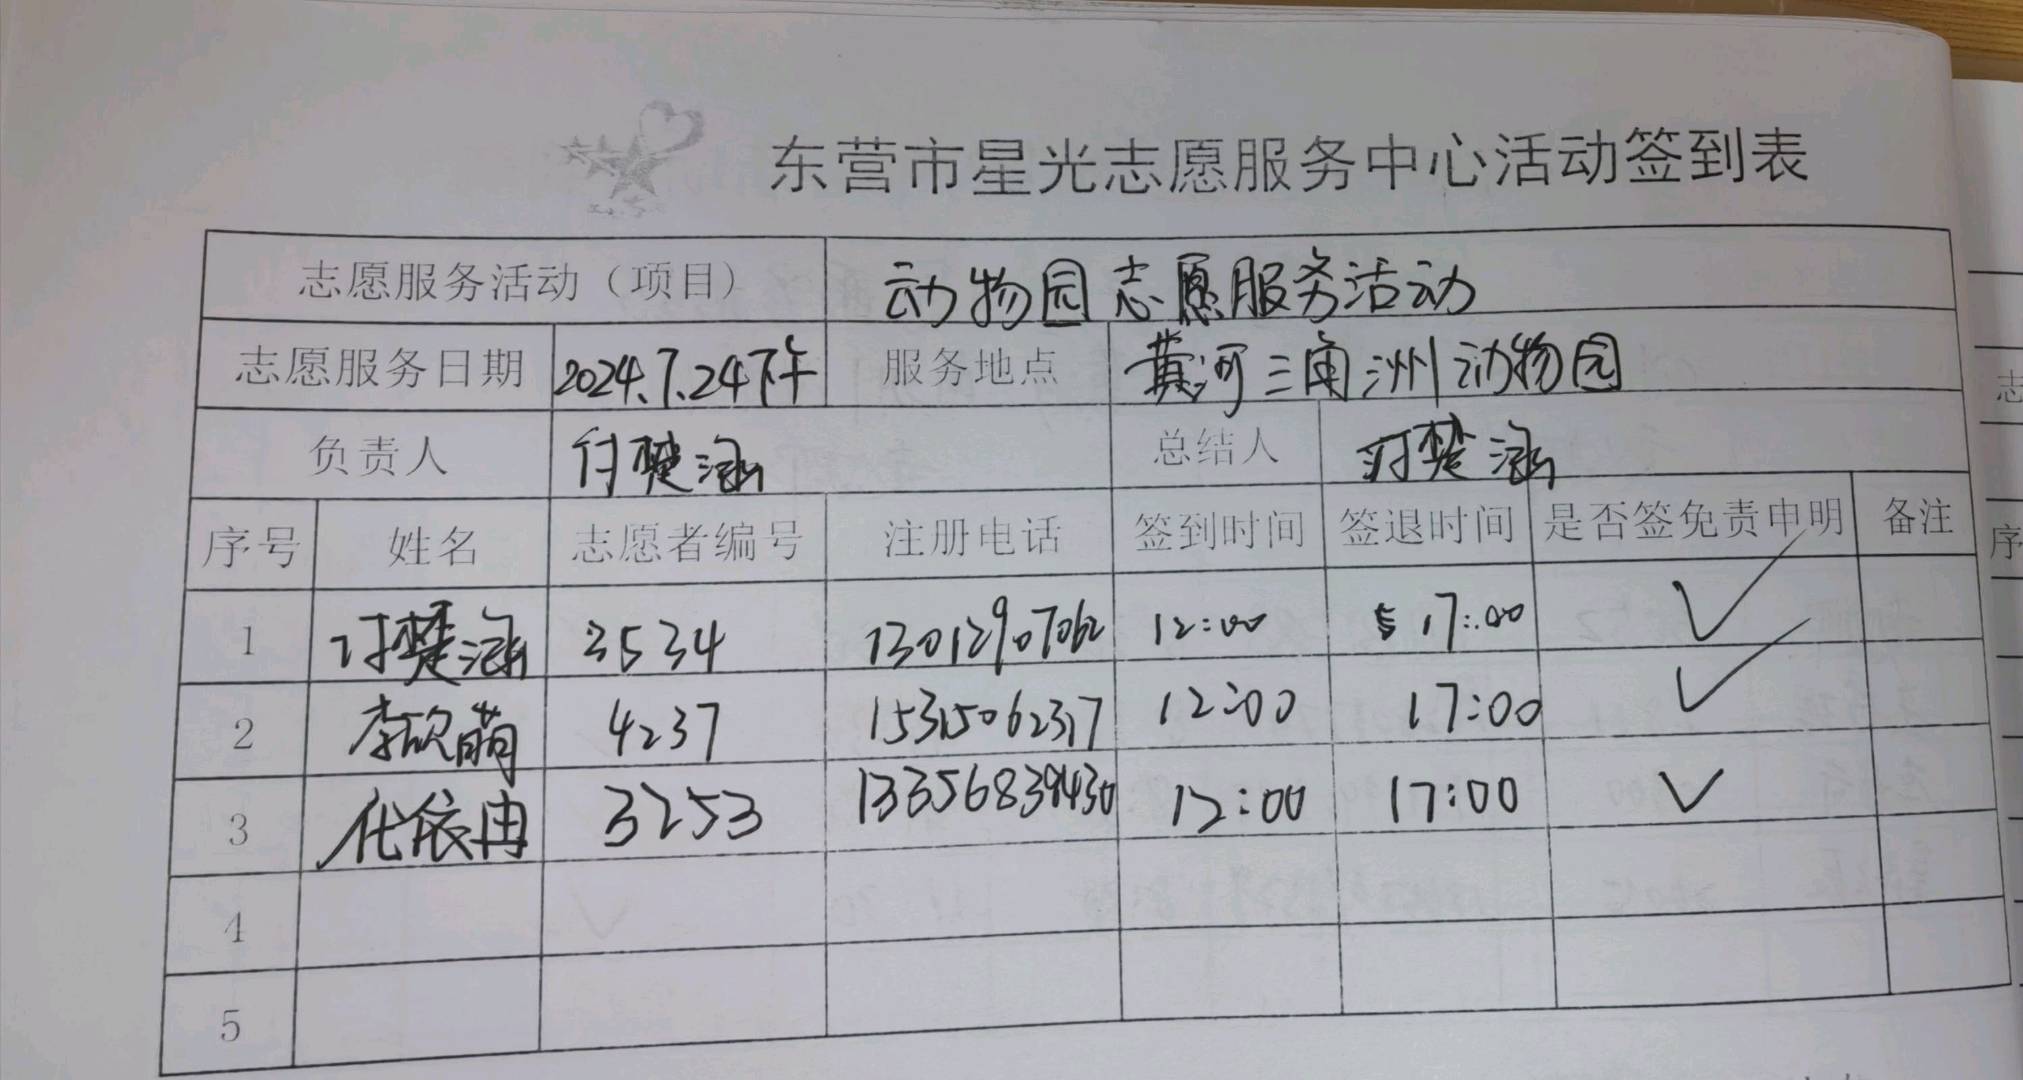 东营市星光志愿服务中心活动签到表
志愿服务活动（项目） 动物园志愿服务活动
志愿服务日期 2024.7.24下午 服务地点 黄河三角洲动物园
负责人 付楚涵 总结人 付楚涵
序号 姓名 志愿者编号 注册电话 签到时间 签退时间 是否签免责申明 备注
1 付楚涵 3534 13012907062 12:00 17:00 ✓
2 李欣萌 4237 15315062317 12:00 17:00 ✓
3 代依冉 3253 13356839430 12:00 17:00 ✓
4
5
志
序